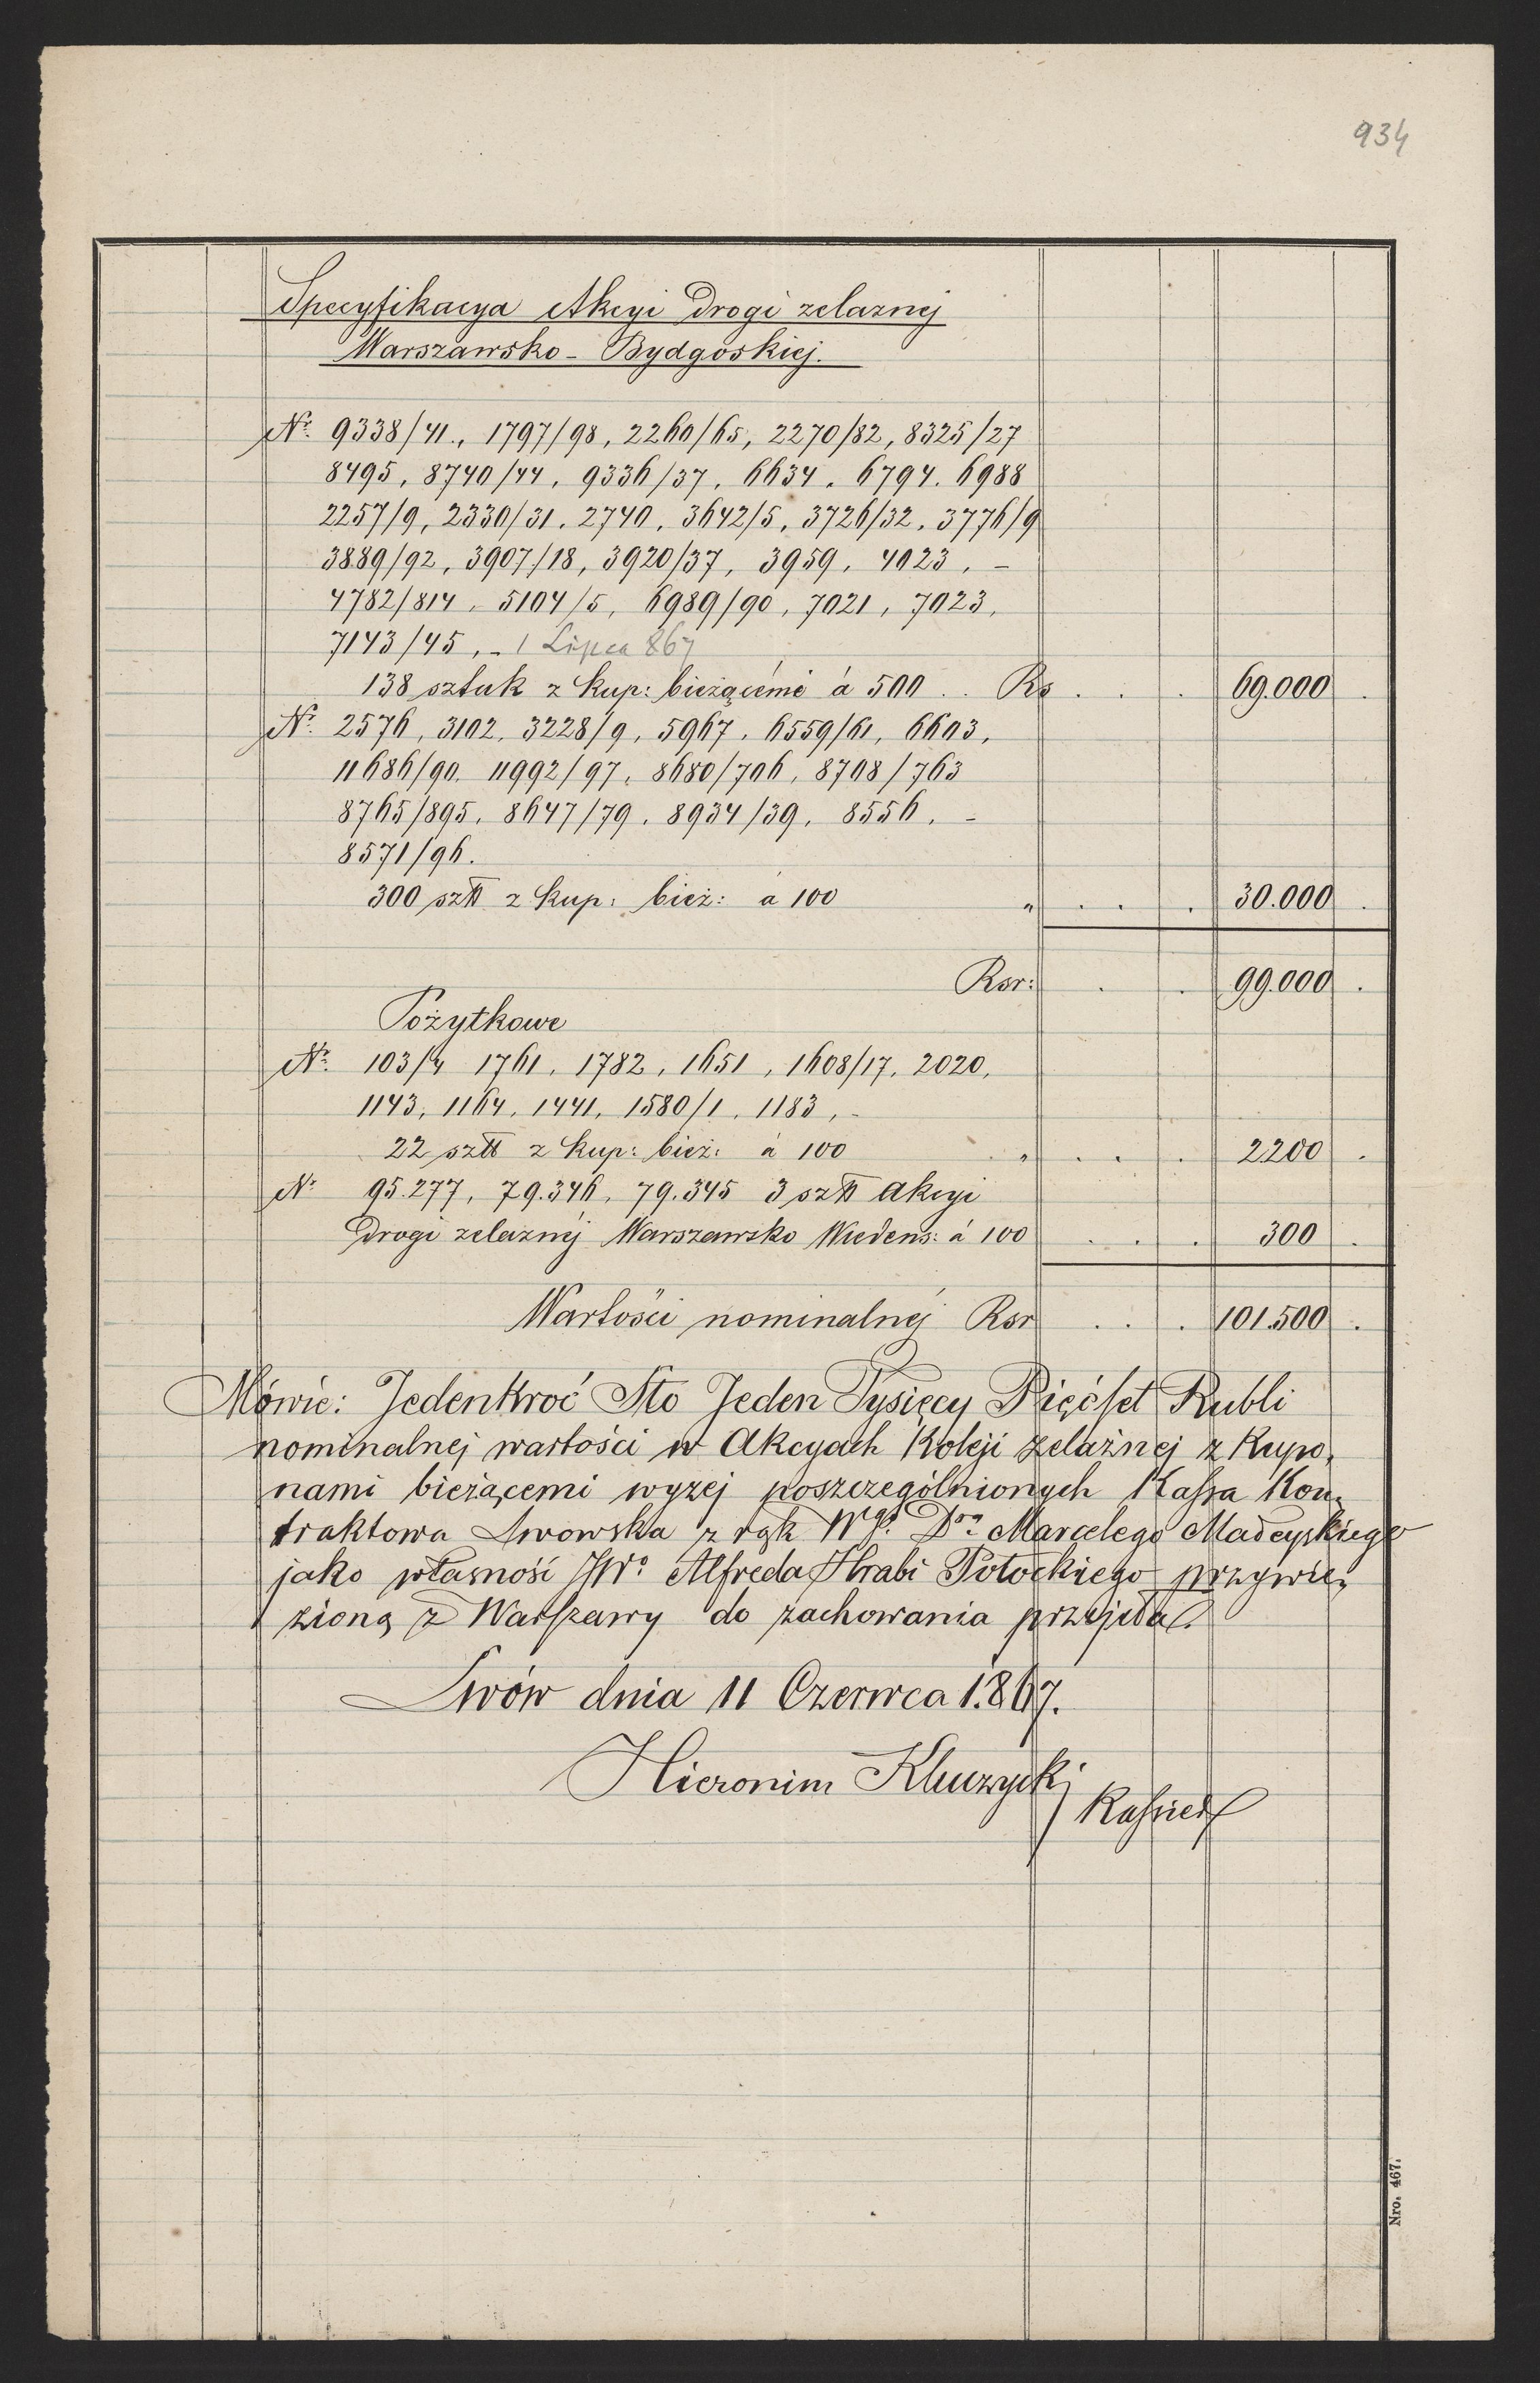 934
Specyfikacya Akcyi Drogi zelaznej
Warszawsko - Bydgoskiej.
Nr. 9338/41., 1797/98, 2260/65, 2270/82, 8325/27
8495, 8740/44, 9336/37, 6634, 6794, 6988
2257/9, 2330/31, 2740, 3642/5, 3726/32, 3776/9
3889/92, 3907/18, 3920/37, 3959, 4023, -
4782/814, 5104/5, 6989/90, 7021, 7023,
7143/45, - 1 Lipca 867
138 sztuk z kup: bieżącémi á 500 . . Rs . . . 69.000 .
Nr. 2576, 3102, 3228/9, 5967, 6559/61, 6603,
11686/90, 11992/97, 8680/706, 8708/763
8765/895, 8647/79, 8934/39, 8556, -
8571/96.
300 szt z kup: bież: á 100 " . . . 30.000 .
Rsr: . . 99.000 .
Pożytkowe
Nr. 103/4 1761, 1782, 1651, 1608/17, 2020,
1143, 1164, 1441, 1580/1, 1183, -
22 szt z kup: bież: á 100 " . . . 2200 .
Nr 95.277, 79.346, 79.345 3 szt Akcyi
Drogi zelaznéj Warszawsko Wiedens: á 100 . . . 300 .
Wartości nominalnéj Rsr . . . 101.500 .
Mówie: Jedenkroć Sto Jeden Tysięcy Pięćset Rubli
nominalnej wartości w Akcyach Koleji żelaźnej z Kupo-
nami bieżącemi wyzej poszczególnionych Kassa Kon-
traktowa Lwowska z rąk Wgo. Dra Marcelego Madeyskiego
jako własność JWo Alfreda Hrabi Potockiego przywie-
zioną z Warszawy do zachowania przyjęła.
Lwów dnia 11 Czerwca 1.867.
Hieronim Kluczycki
Kassier
Nro. 467.